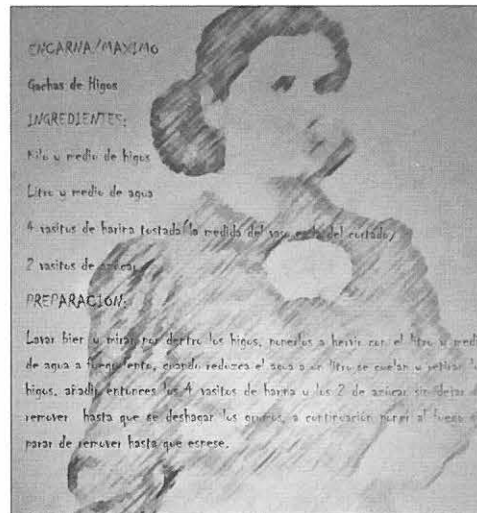 ENCARNA/MAXIMO
Gachas de Higos
INGREDIENTES:
Kilo y medio de higos
Litro y medio de agua
4 vasitos de harina tostada(la medida del vaso es la del cortado)
2 vasitos de azúcar
PREPARACIÓN:
Lavar bien y mirar por dentro los higos, ponerlos a hervir con el litro y medio
de agua a fuego lento, cuando reduzca el agua a un litro se cuelan y retiran los
higos, añadir entonces los 4 vasitos de harina y los 2 de azúcar sin dejar de
remover hasta que se deshagan los grumos, a continuación poner al fuego sin
parar de remover hasta que espese.